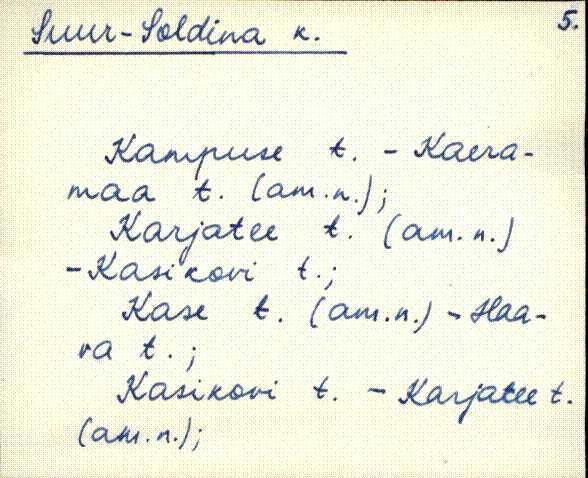 Suur-Soldina k. 5.
Kampuse t. - Kaera-
maa t. (am.n.);
Karjatee t. (am.n.)
- Kasikovi t.;
Kase t. (am.n.) - Haa-
va t.;
Kasikovi t. - Karjatee t.
(am.n.);